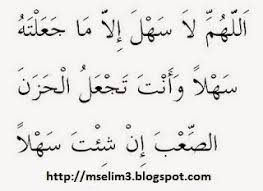 اَللّٰهُمَّ لاَ سَهْلَ إِلاَّ مَا جَعَلْتَهُ
سَهْلاً وَأَنْتَ تَجْعَلُ الْحَزَنَ
الصَّعْبَ إِنْ شِئْتَ سَهْلاً
http://mselim3.blogspot.com